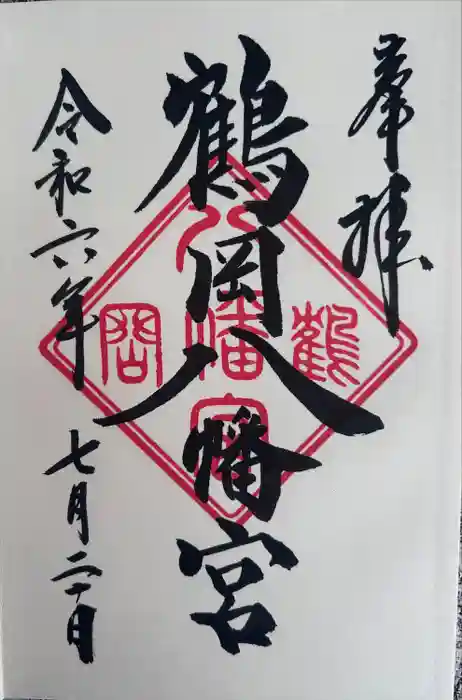 奉拝
鶴岡八幡宮
鶴
八幡宮
岡
令和六年
七月二十日